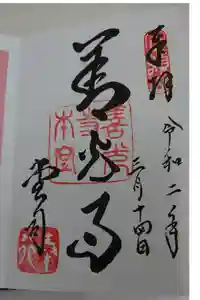 奉拝
令和二年
三月十四日
善光寺
堂司